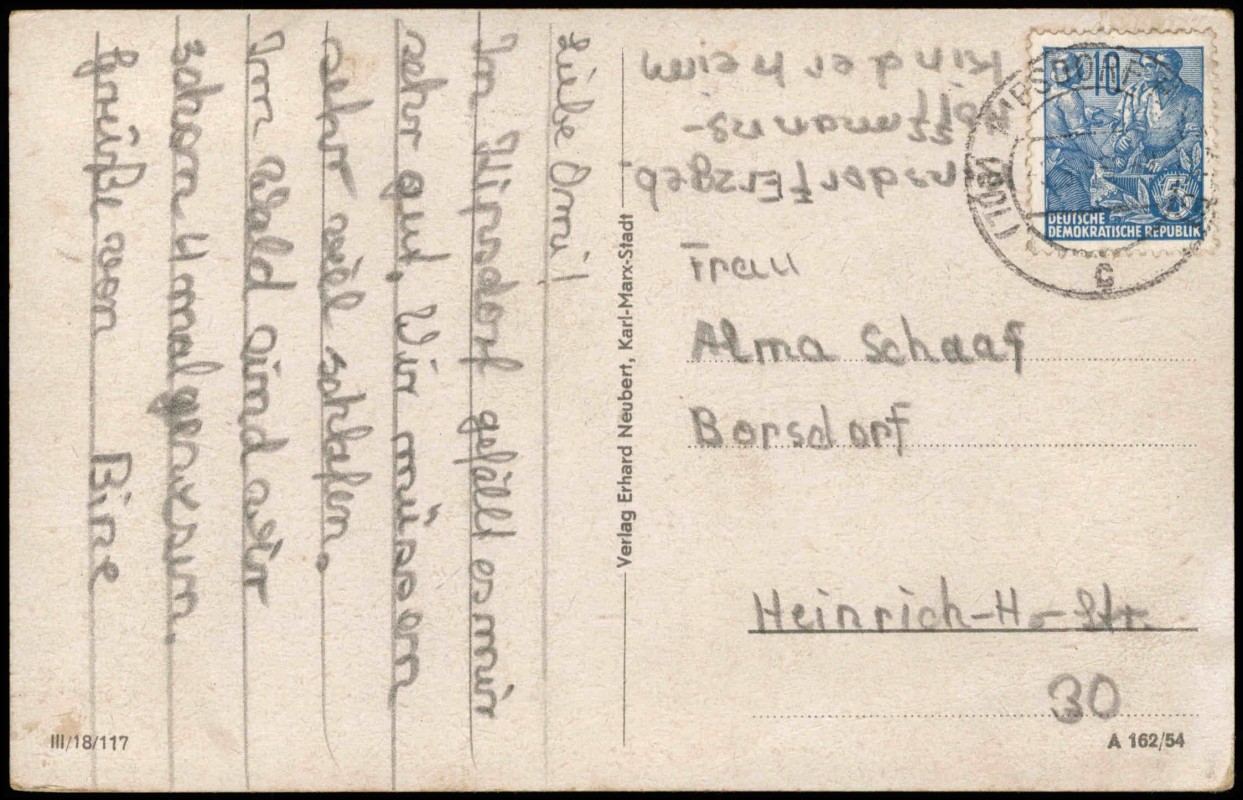 Liebe Omi!
In Hipsdorf gefällt es mir
sehr gut. Wir müssen
sehr viel schlafen.
Im Wald sind wir
schon 4 mal gewesen.
Grüße von Bine
Kinderheim
Erzgeb
10
5
DEUTSCHE
DEMOKRATISCHE REPUBLIK
c
Frau
Alma Schaaf
Borsdorf
Heinrich-H.-Str.
30
Verlag Erhard Neubert, Karl-Marx-Stadt
III/18/117
A 162/54